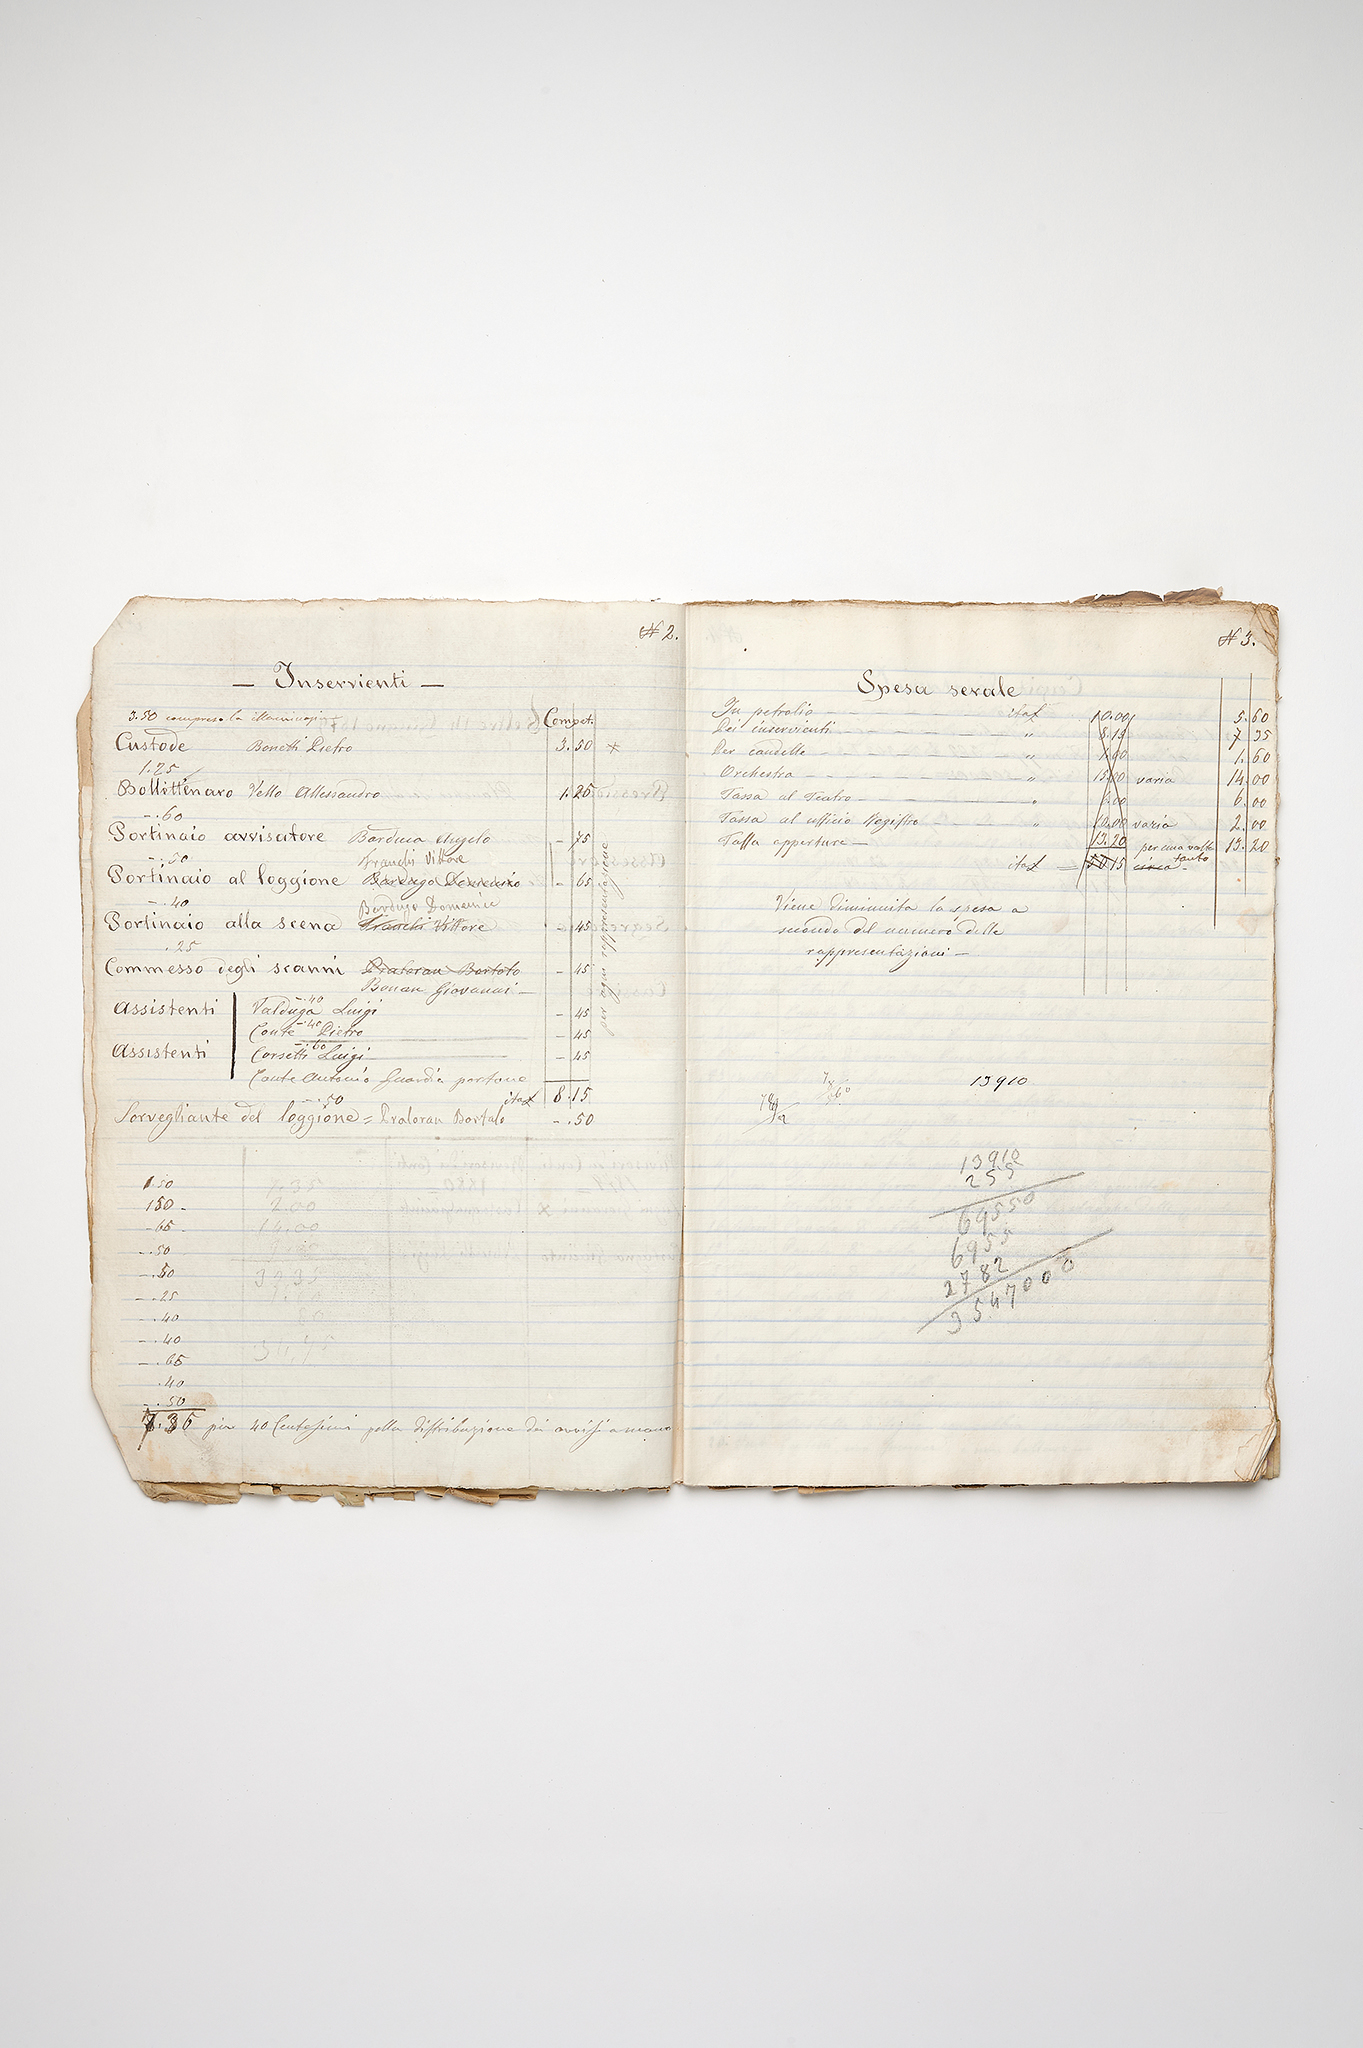 N 2.
— Inservienti —
3.50 compreso la illuminazione
Compet.
Custode Bonetti Pietro 3.50 ×
1.25
Bollettinaro Vello Alessandro 1.25
-.60
Portinaio avvisatore Barduca Angelo - 75
-.50 Franchi Vittore
Portinaio al loggione Bardugo Domenico - 65
-.40 Bardugo Domenico
Portinaio alla scena Franchi Vittore - 45
.25
Commesso degli scanni Praloran Bortolo - 45
Bonan Giovanni —
-.40
Assistenti Valduga Luigi - 45
-.40
Conte Pietro - 45
-.60
Assistenti Corsetti Luigi - 45
Conte Antonio Guardia portone
ital 8.15
-.50
Sorvegliante del loggione = Praloran Bortolo -.50
per ogni rappresentazione
1.50
150 -
-65 -
-.50
-.50
-.25
-.40
-.40
-.65
.40
-.50
7.35 più 40 Centesimi pella distribuzione dei avvisi a mano
N 3.
Spesa serale
In petrolio ital 10.00 5.60
Dei inservienti " 8.15 7 35
Per candelle " 1.60 1.60
Orchestra " 15.00 varia 14.00
Tassa al Teatro " 6.00 6.00
Tassa al ufficio Registro " 10.00 varia 2.00
Tassa apperture — 13.20 per una volta tanto 13.20
ital = 50 15 circa
Viene diminuita la spesa a
secondo del numero delle
rappresentazioni —
13910
13910
255
69550
6955
2782
3547000